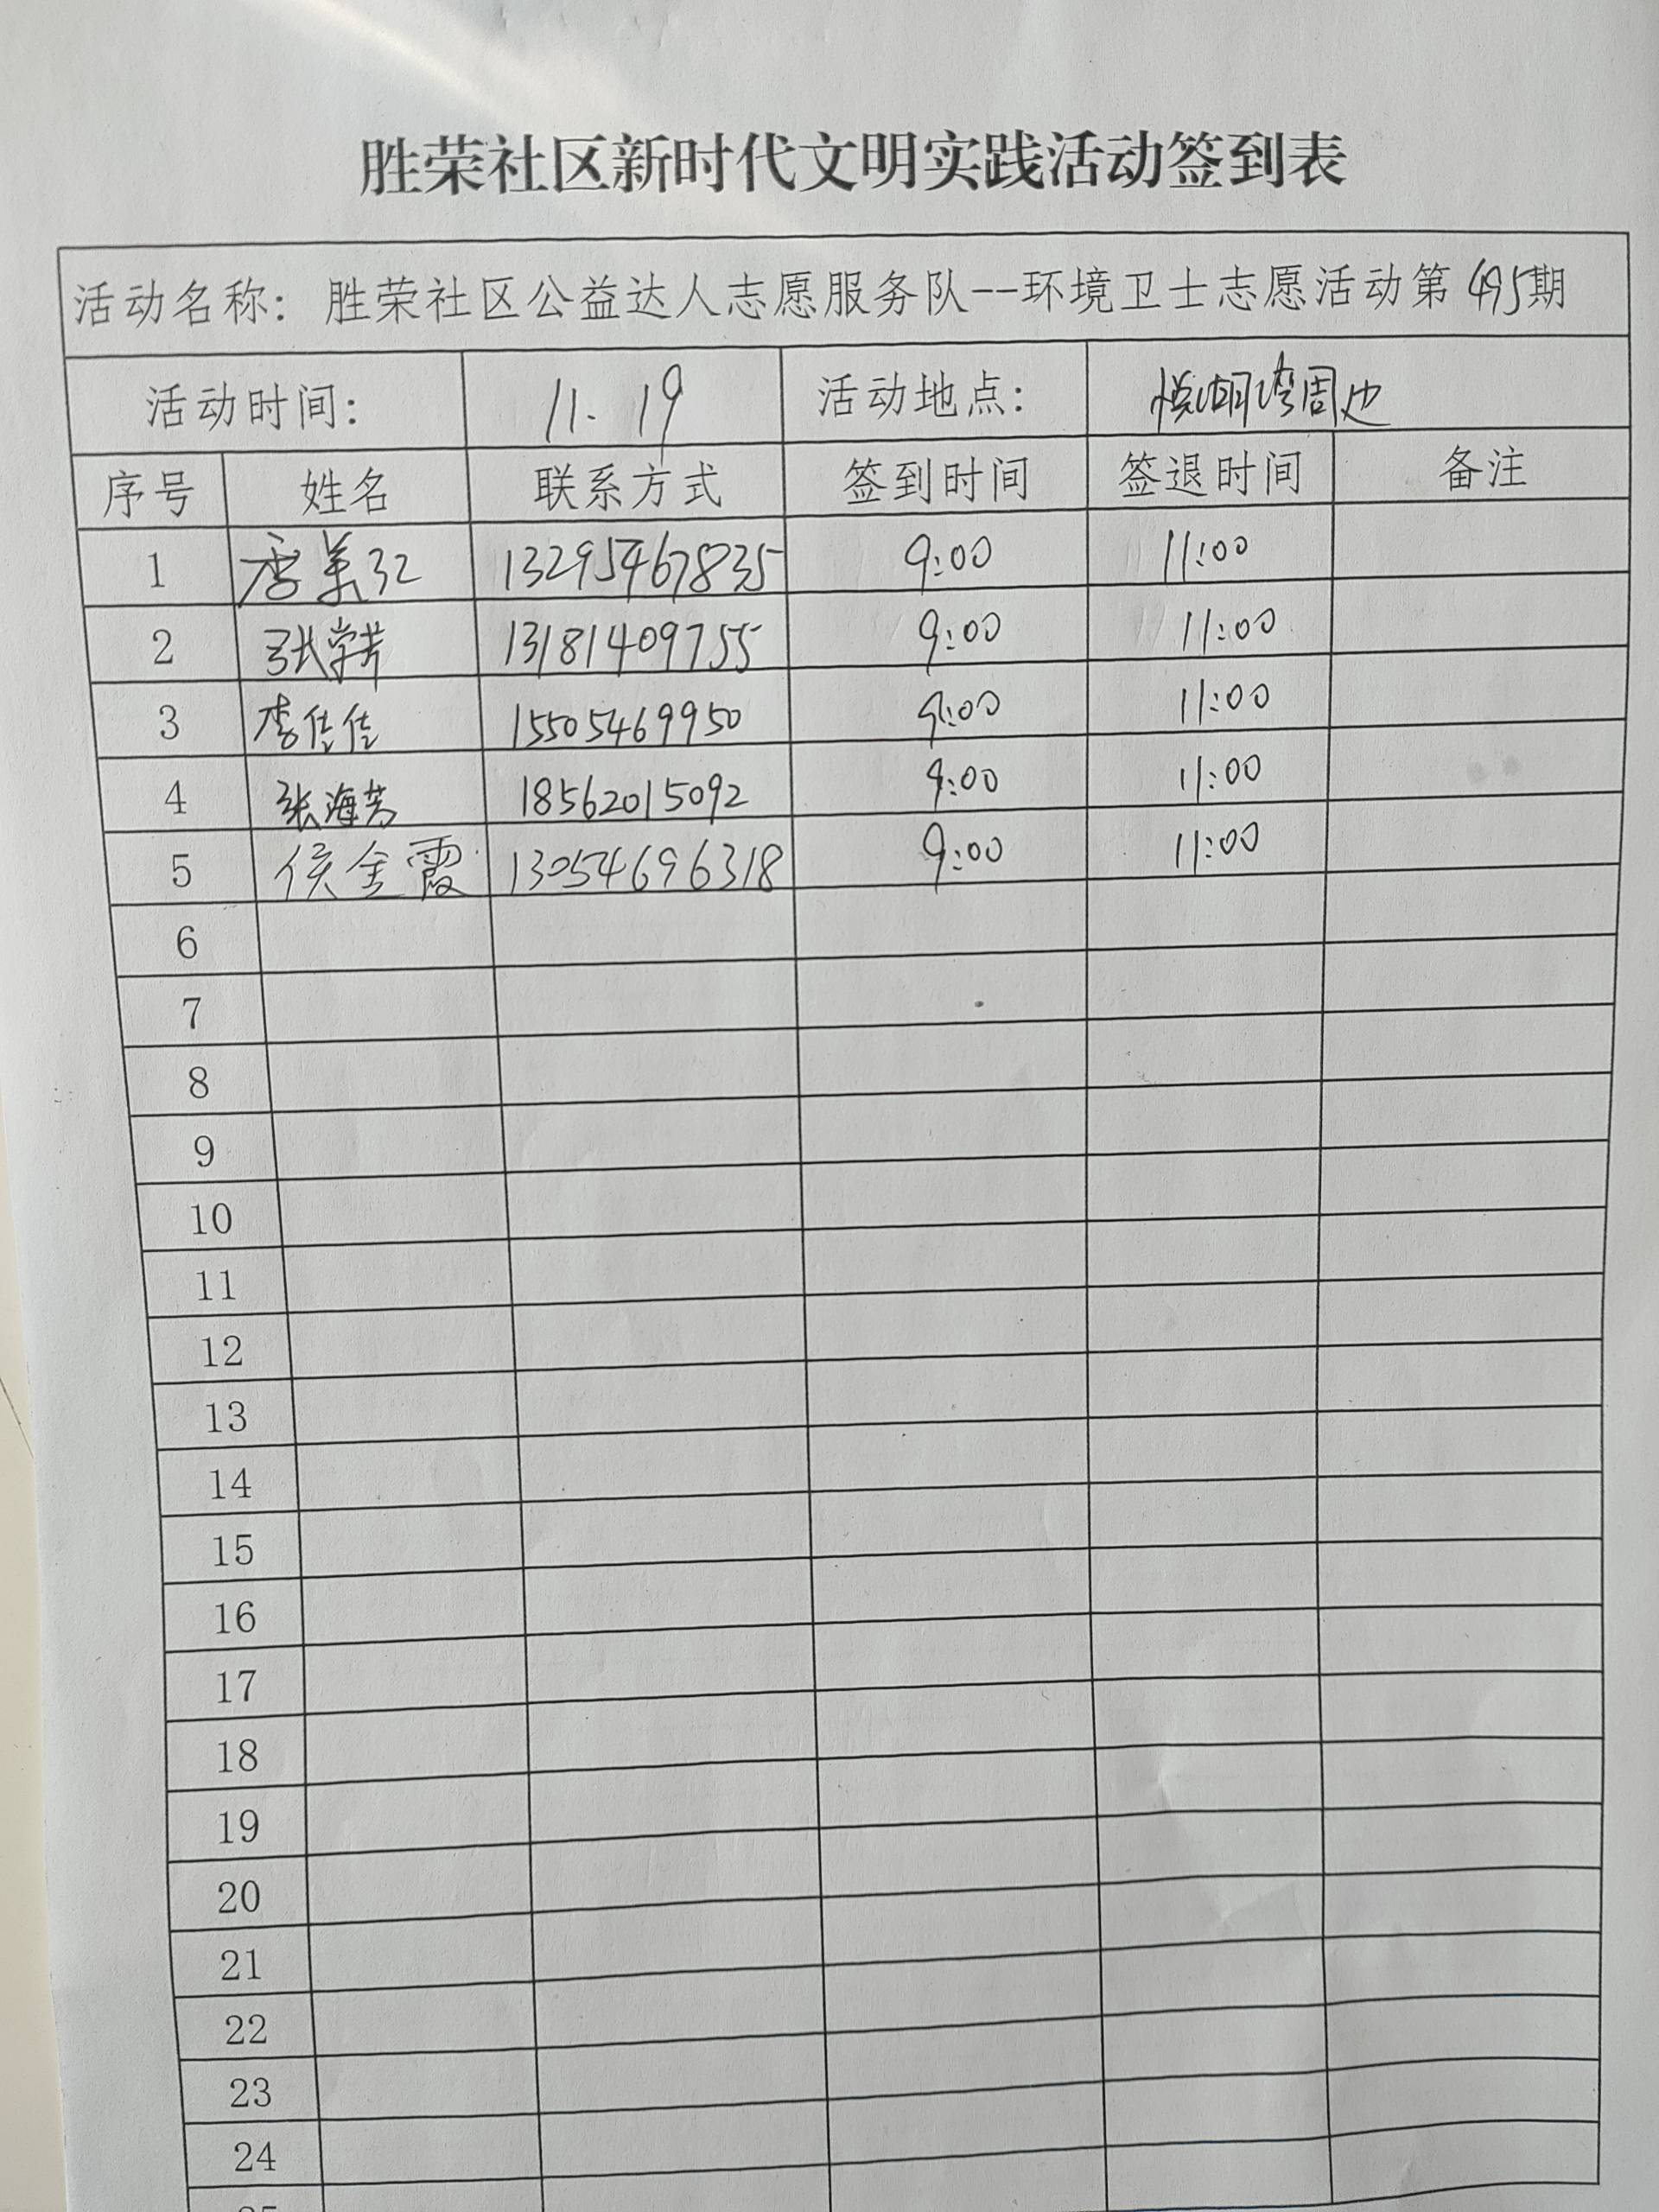 胜荣社区新时代文明实践活动签到表
活动名称：胜荣社区公益达人志愿服务队--环境卫士志愿活动第495期
活动时间： 11.19 活动地点： 悦湖湾周边
序号 姓名 联系方式 签到时间 签退时间 备注
1 李美 13295467835 9:00 11:00
2 张学芳 13181409755 9:00 11:00
3 李佳佳 15505469950 9:00 11:00
4 张海芳 18562015092 9:00 11:00
5 侯金霞 13054696318 9:00 11:00
6
7
8
9
10
11
12
13
14
15
16
17
18
19
20
21
22
23
24